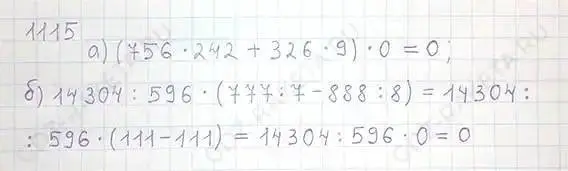 1115
а) (756 · 242 + 326 · 9) · 0 = 0;
б) 14304 : 596 · (777 : 7 - 888 : 8) = 14304 :
: 596 · (111 - 111) = 14304 : 596 · 0 = 0